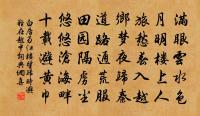 滿眼雲水色
月明樓上人
旅愁春入越
鄉夢夜歸秦
道路通荒服
田園隔虜塵
悠悠滄海畔
十載避黃巾
白居易江樓望歸時避
難在越中詞典網